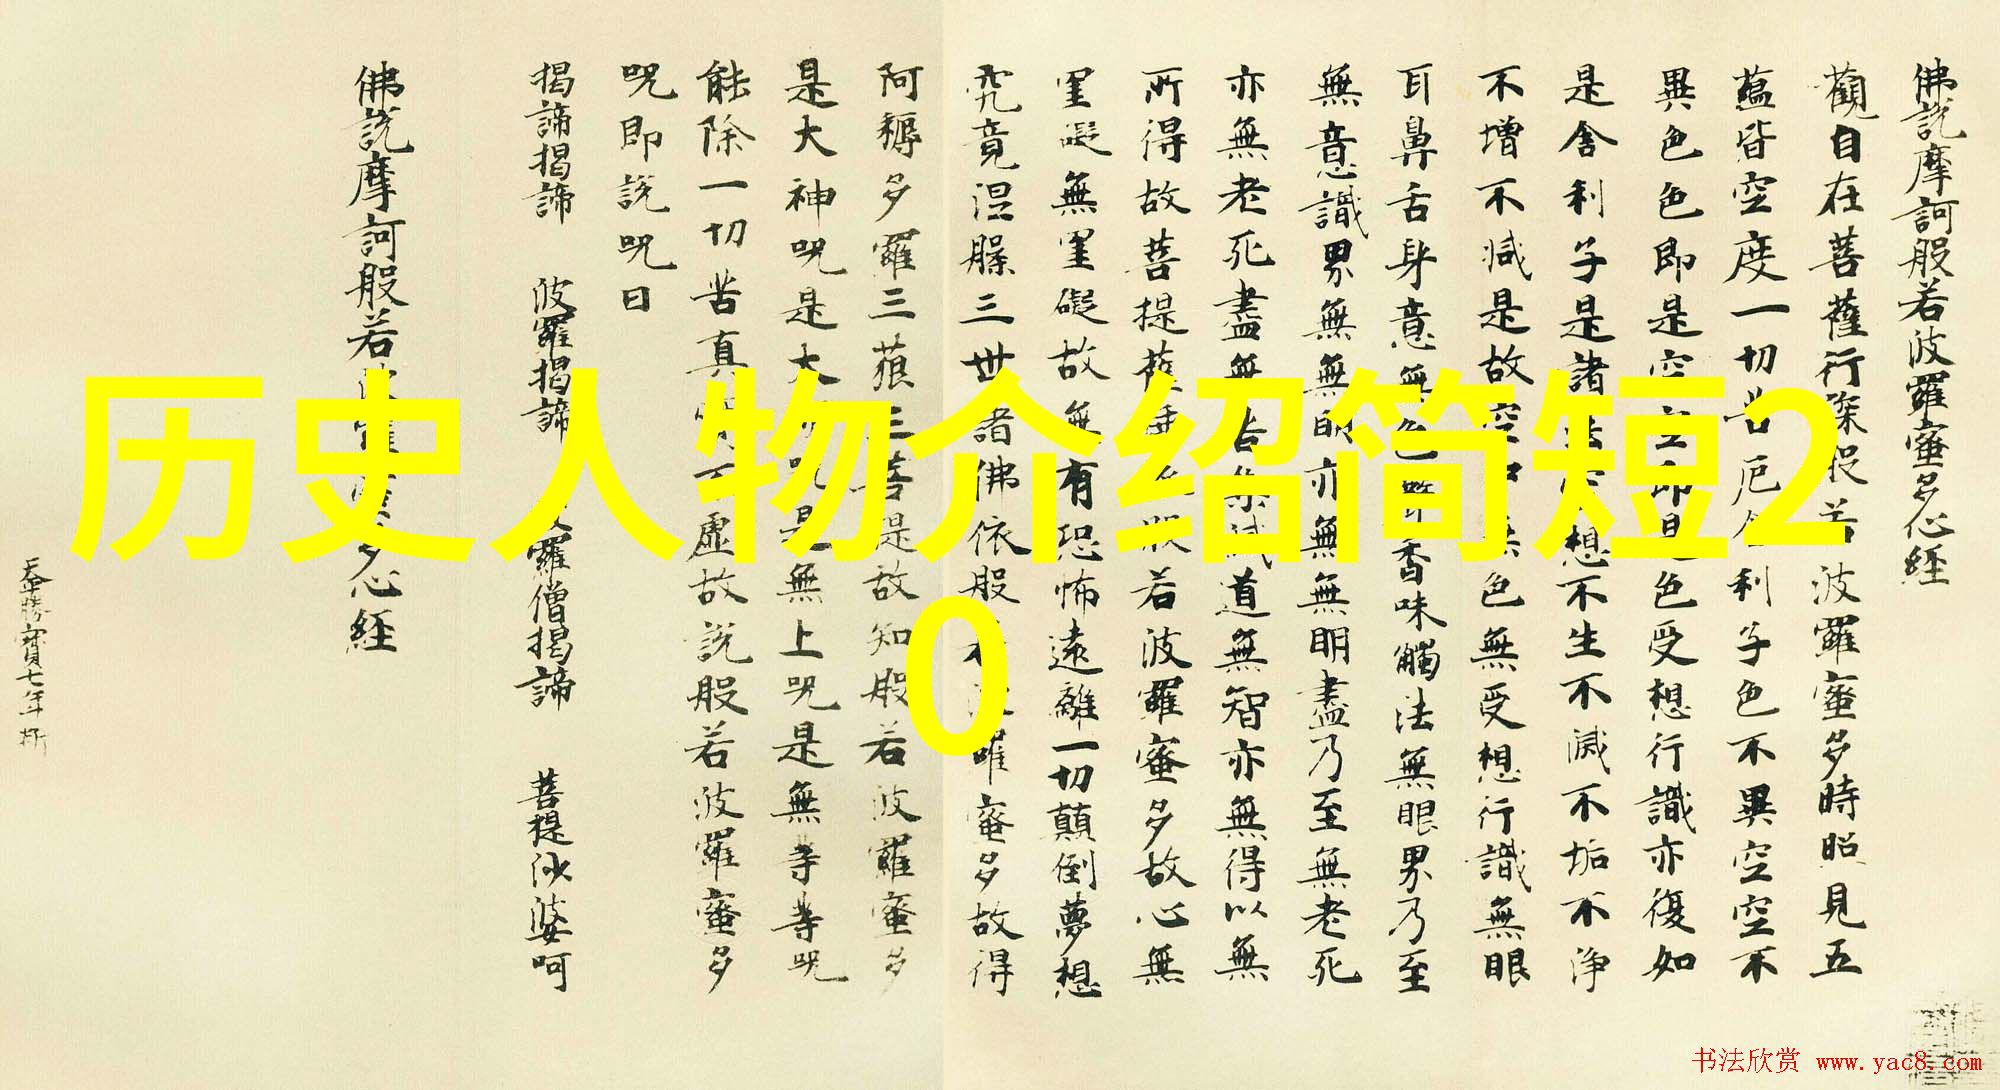 历史人物介绍简短2
0
佛說摩訶般若波羅蜜多心經
觀自在菩薩行深般若波羅蜜多時照見五
蘊皆空度一切苦厄舍利子色不異空空不
異色色即是空空即是色受想行識亦復如
是舍利子是諸法空想不生不滅不垢不淨
不增不減是故空中無色無受想行識無眼
耳鼻舌身意無色聲香味觸法無眼界乃至
無意識界無無明亦無無明盡乃至無老死
亦無老死盡無苦集滅道無智亦無得以無
所得故菩提薩埵依般若波羅蜜多故心無
罣礙無罣礙故無有恐怖遠離一切顛倒夢想
究竟涅槃三世諸佛依般若波羅蜜多故得
阿耨多羅三藐三菩提是故知般若波羅蜜多
是大神呪是大明呪是無上呪是無等等呪
能除一切苦真實不虛故說般若波羅蜜多
呪即說呪曰
揭諦揭諦 波羅揭諦 波羅僧揭諦 菩提沙婆呵
佛說摩訶般若波羅蜜多心經
勝寶七年
书法欣赏 www.yac8.com